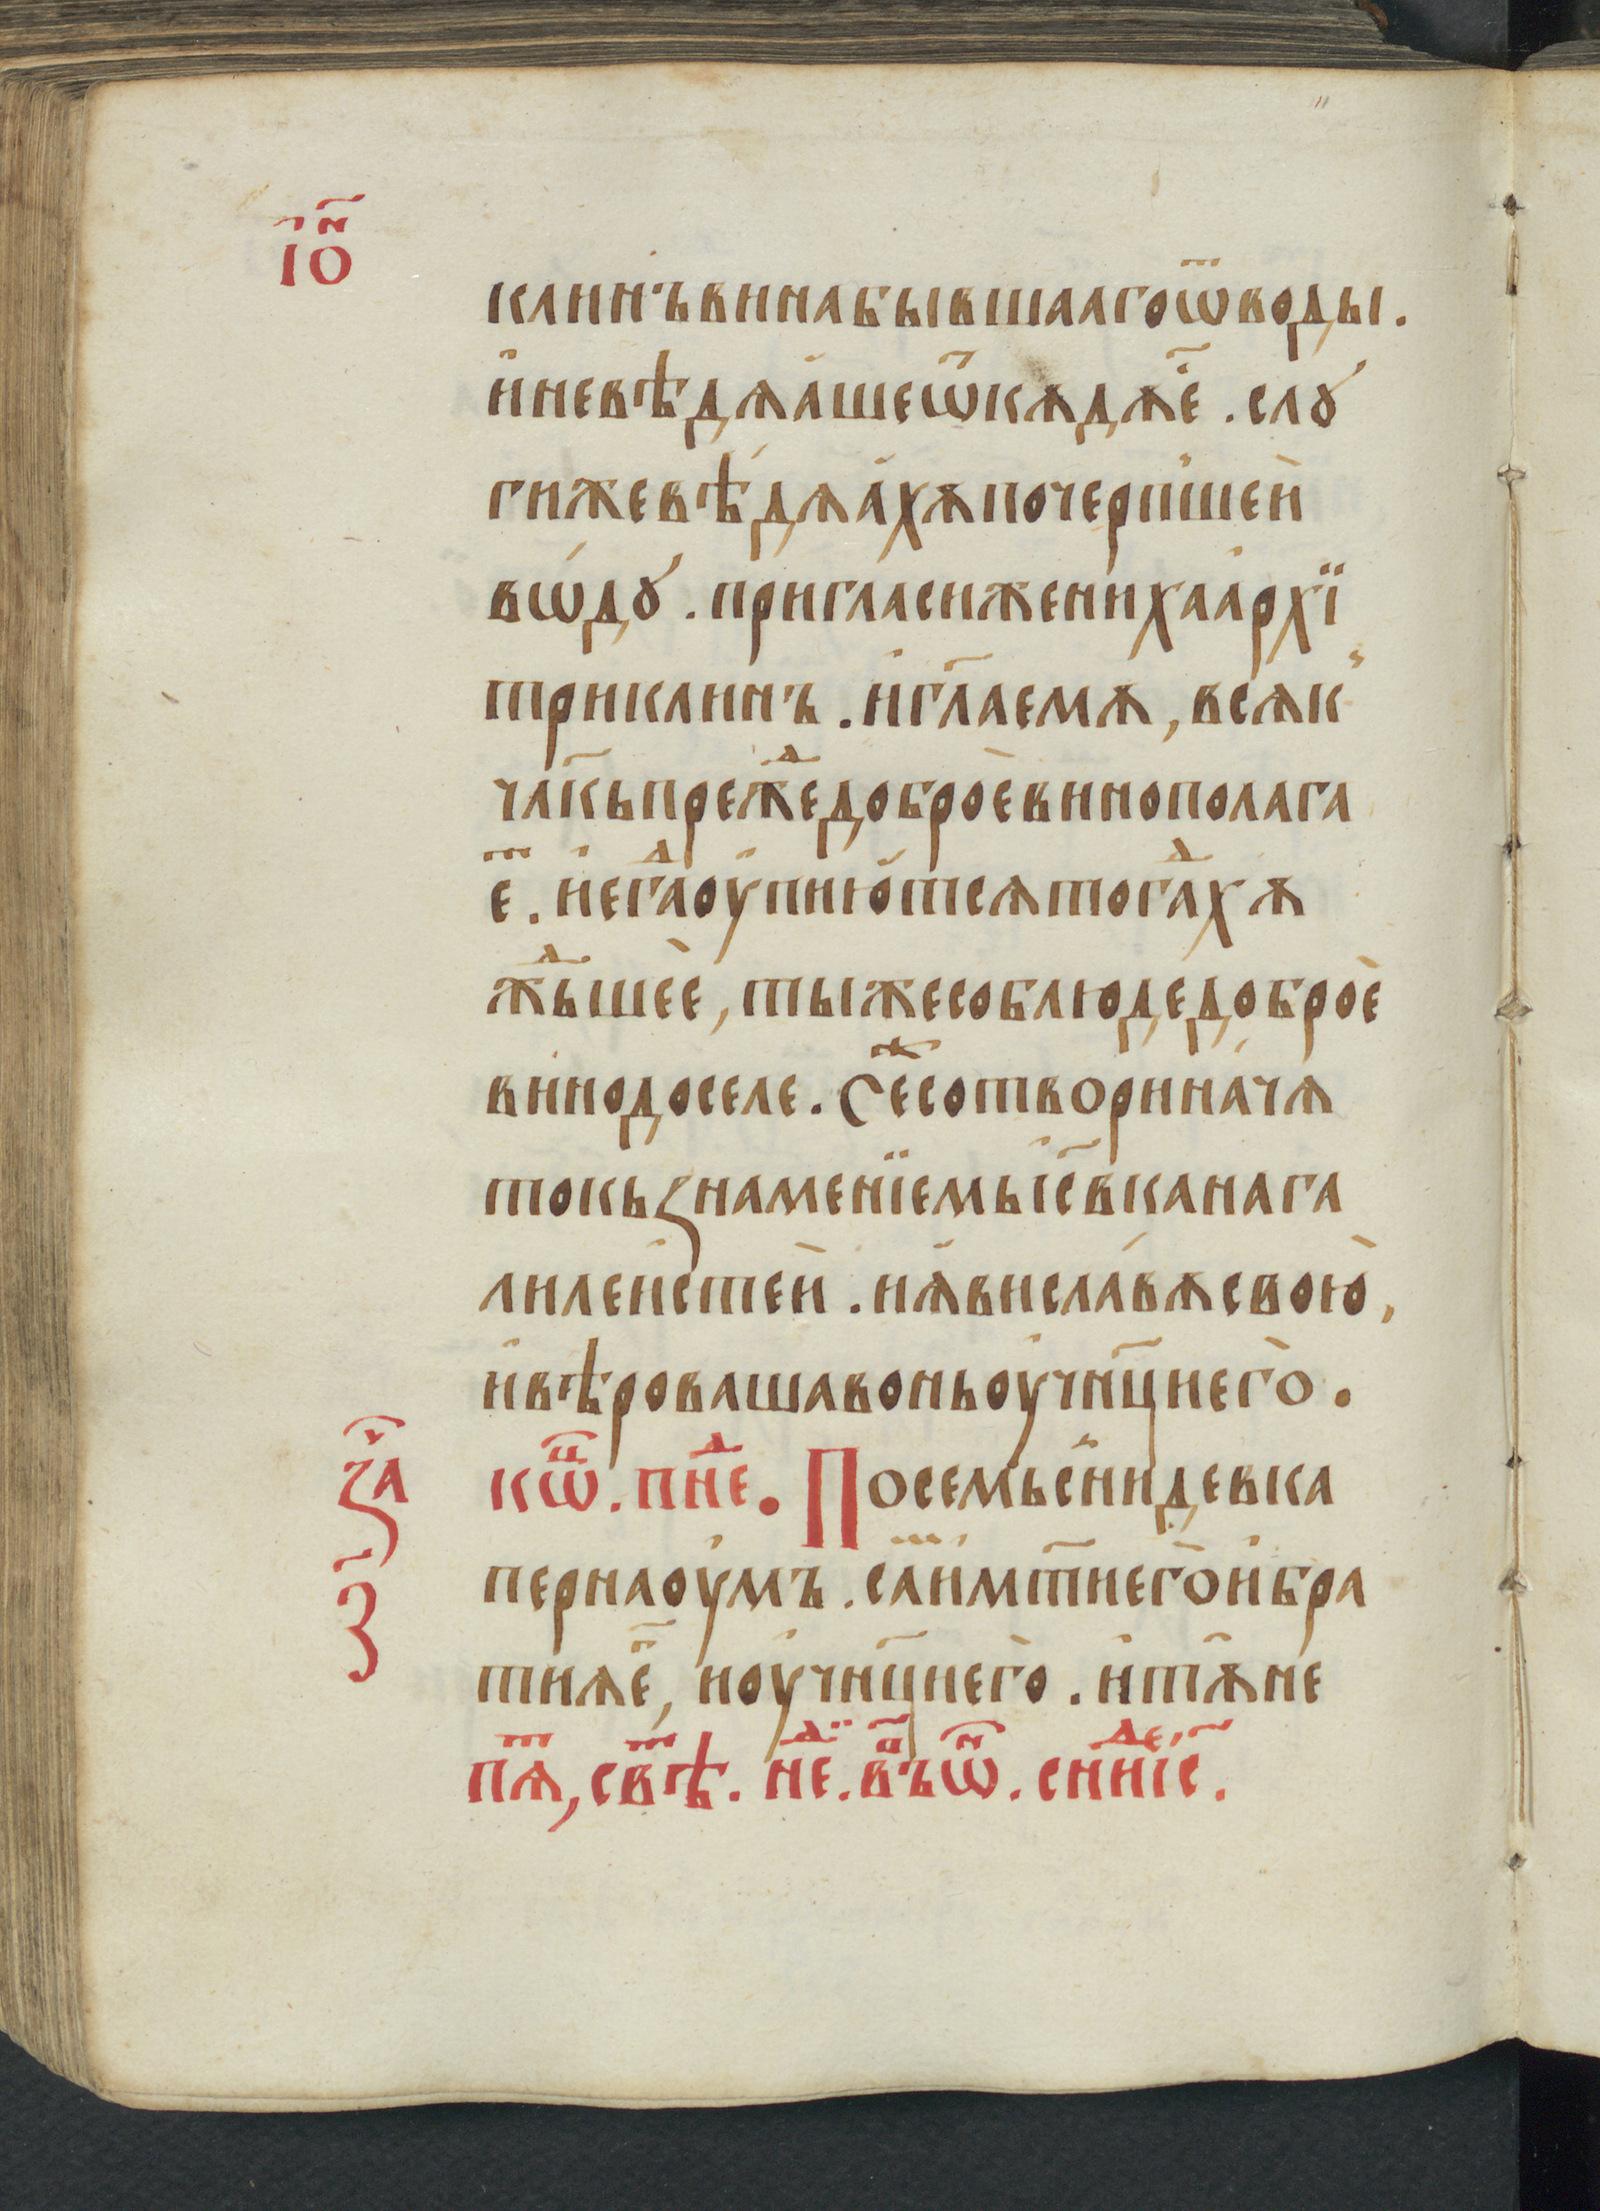 і҆ѡ҃н
клинъвинабывшаагоѿводы.
и҆невѣдѧа҆шеѿкѫдѫ҆е҃.слꙋ
гижевѣдѧа҆хѫпоче́рпшеи҆
вѡ́дꙋ.пригласижениха́а҆рхї
триклинъ.и҆гл҃аемѫ,всѧк
чл҃къпреⷤдедоброе҆винополага
еⷮ.и҆егⷣаоу҆пию҆тсѧтогⷣахѫ
жⷣьшее҆,тыжесоблюдедоброе҆
ви҆нодоселе.Сеⷤсотвориначѧ
токъꙁнаменїемьі҆с҃вканага
лилеи҆стеи҆.ꙗ҆вислА́вѫсвою҆,
и҆вѣровашавоньоу҆чн҃цнего҆.
коⷩ҇ѿ.пнⷣе.Посемьсни́девка
пернаоу҆мъ.саⷨи҆мт҃него҆и҆бра
тиѧе҃,и҆оу҆чн҃цнего҆.и҆тⷹне
пѧⷮ,свⷮѣ.неⷣ.вⷫъѿ.сннⷣі҆с҃.
ꙁаⷱ
з